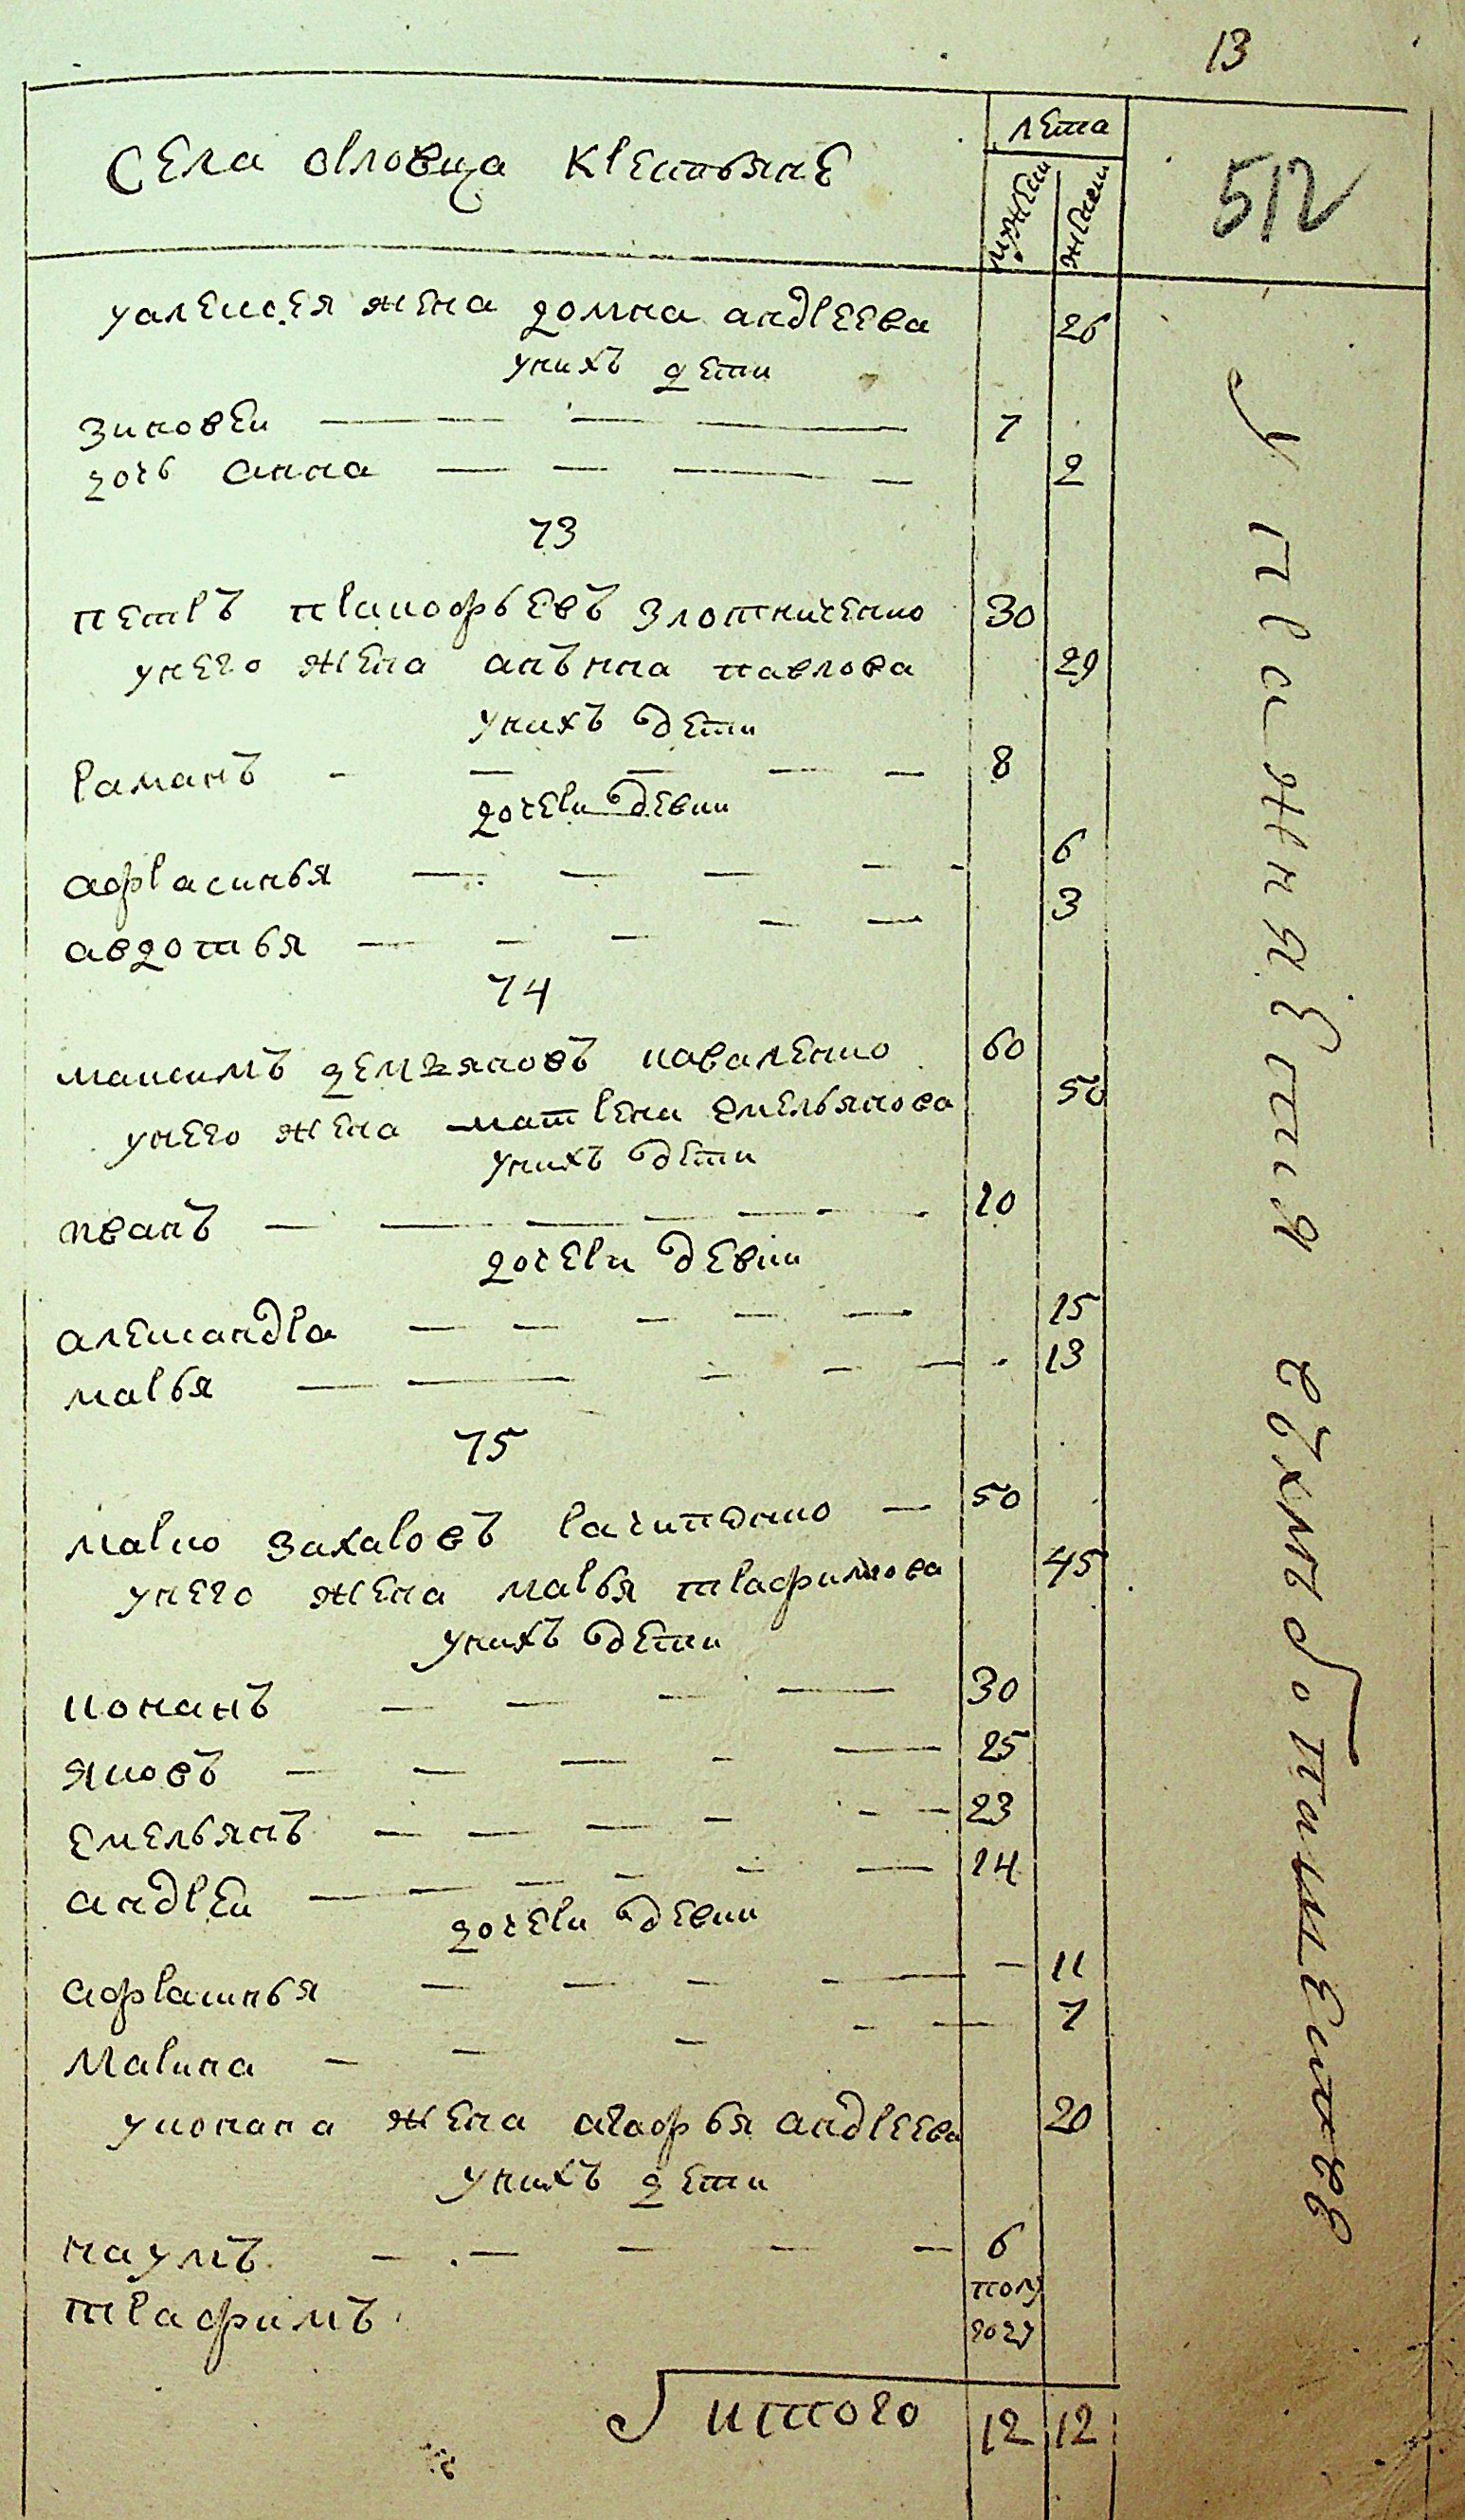 13
Села орловца крестьяне
лета
мужеск
женск
512
уалексея жена домна андреева 26
унихъ дети
зиновеи 7
дочь анна 2
73
петръ пракофьевъ злотниченко 30
унего жена анънна павлова 29
унихъ дети
раманъ 8
дочери девки
афрасинья 6
авдотья 3
74
максимъ демъяновъ коваленко 60
унего жена матрена емельянова 50
унихъ дети
иванъ 20
дочери девки
александра 15
марья 13
75
марко захаровъ 50
унего жена марья трафимова 45
унихъ дети
кононъ 30
яковъ 25
емельянъ 23
андреи 14
дочери девки
афраксинья 11
марина 7
уконана жена агафья андреева 20
унихъ дети
наумъ 6
трафимъ полу году
итого 12 12